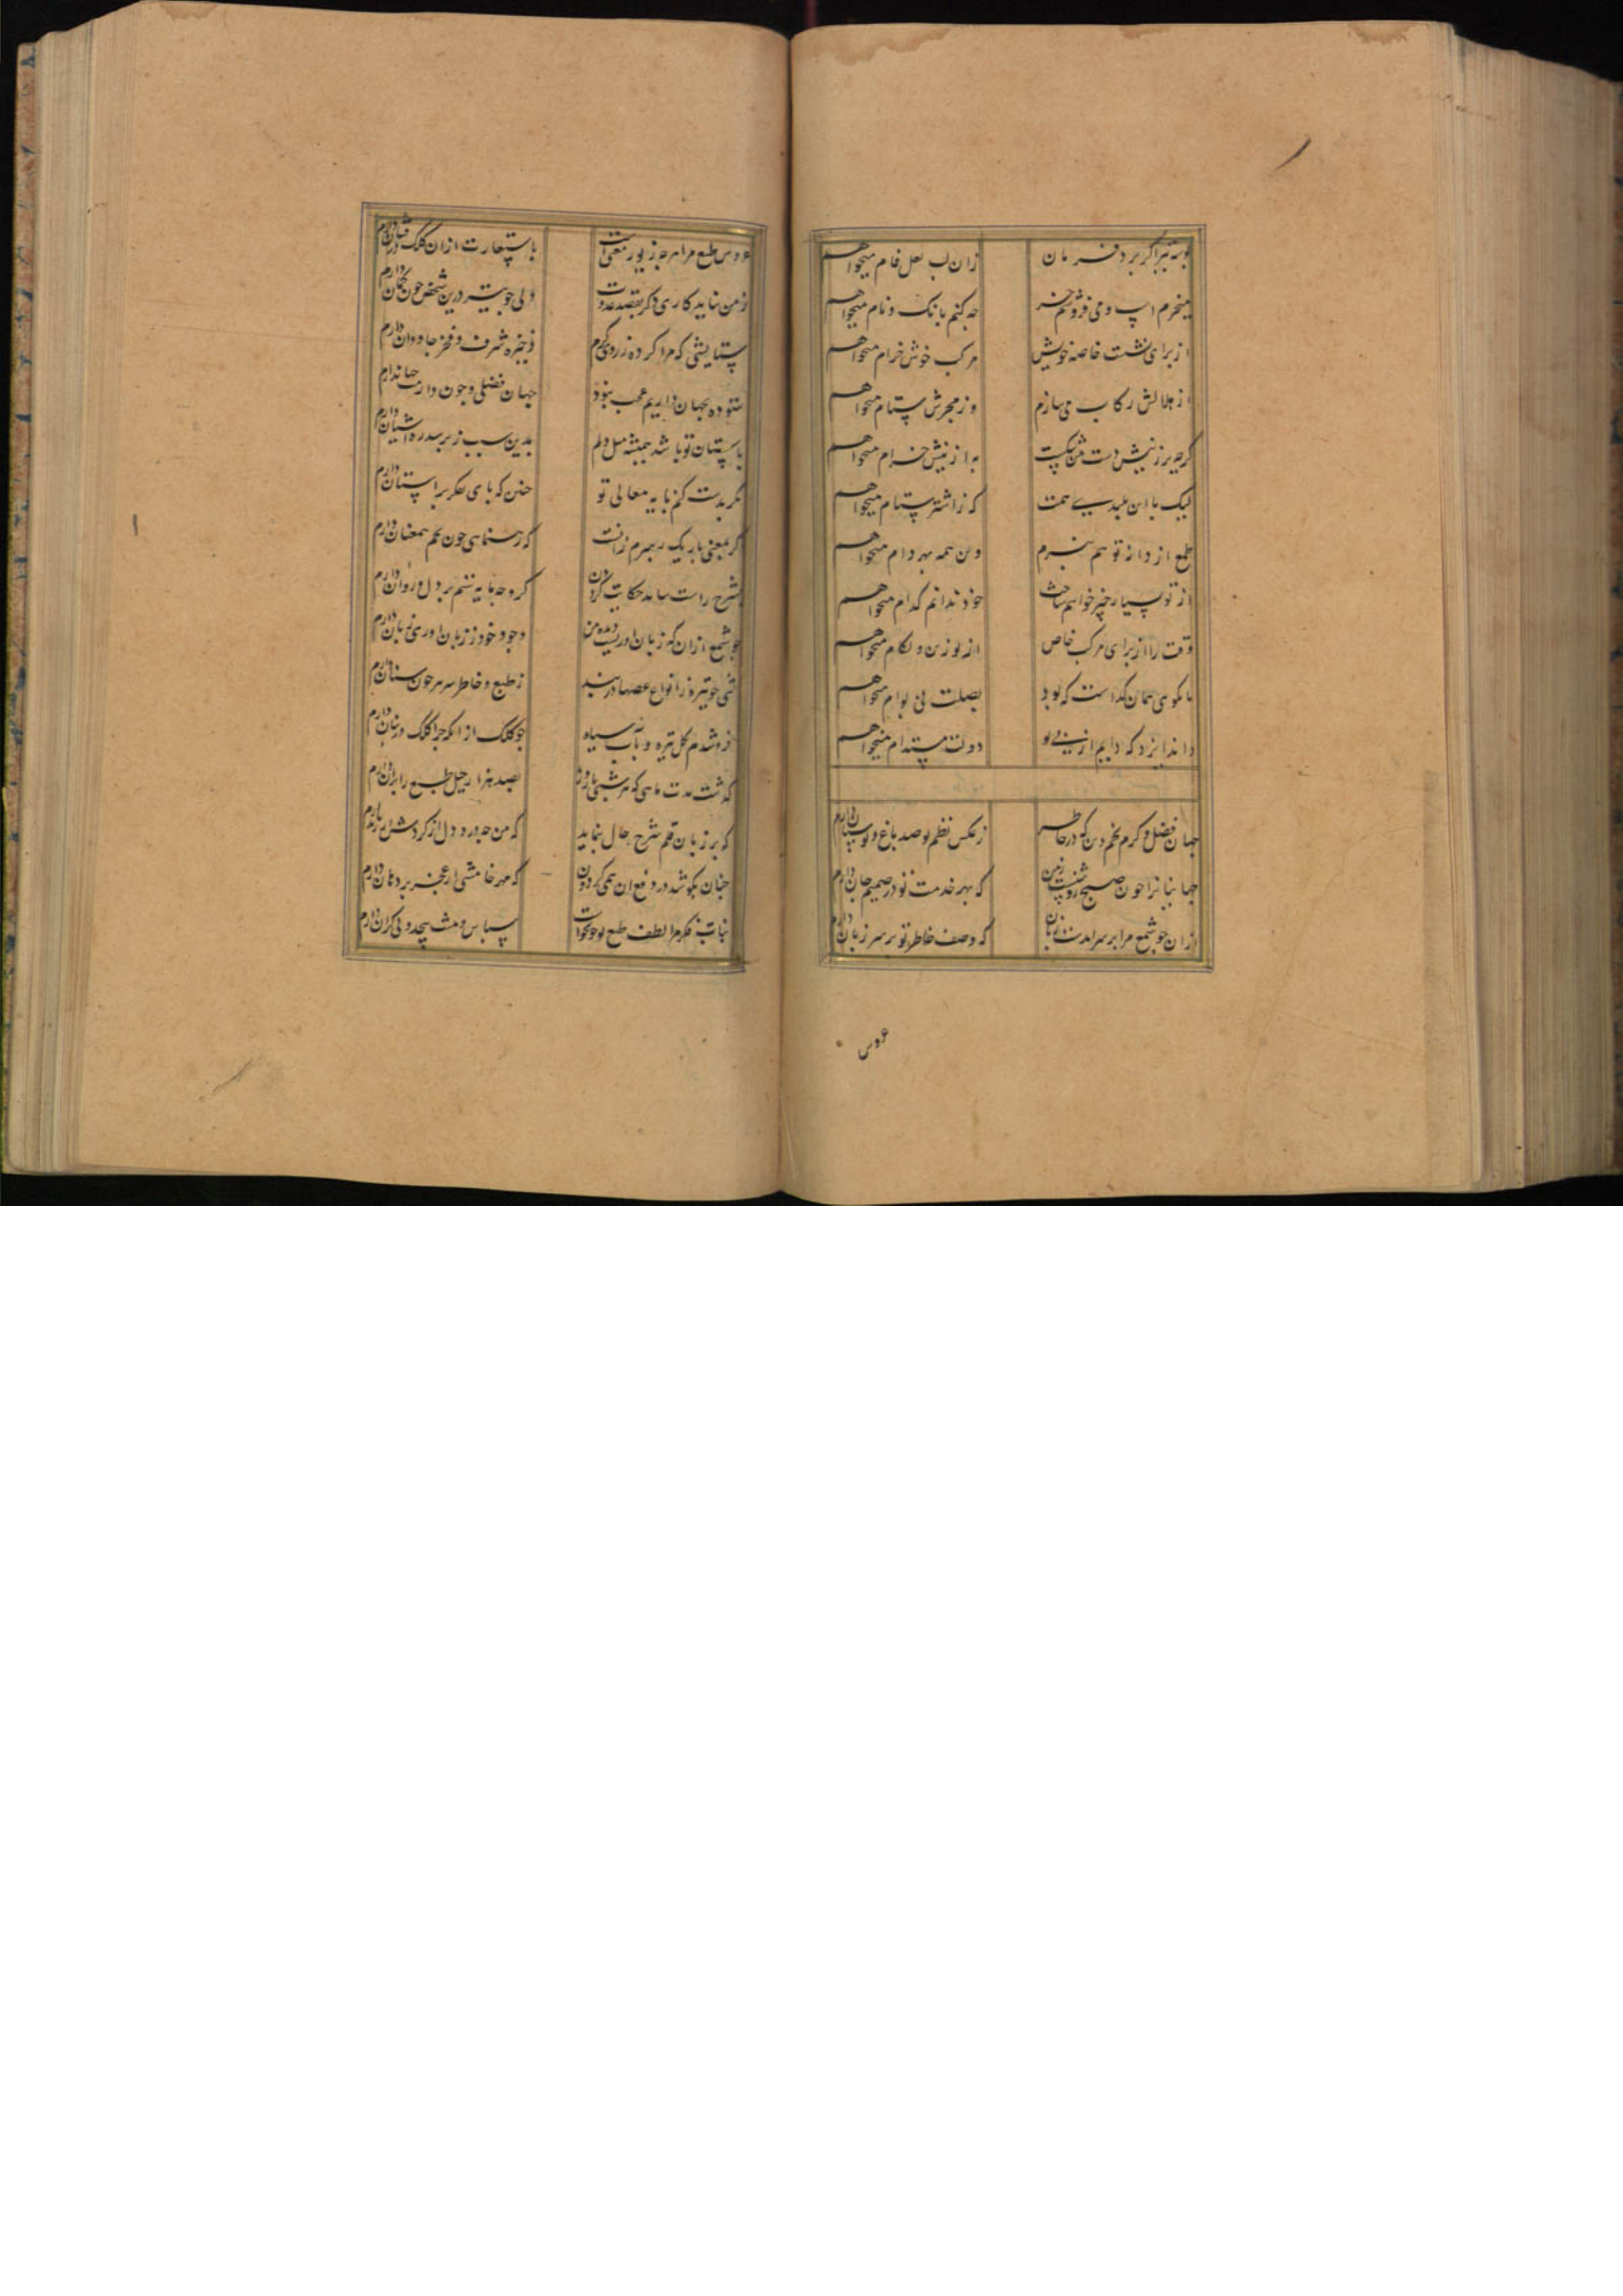 بوسه تیرا گر برد فرمان زان لب لعل فام میخواهم
میخرم اسپ و می فروشم خر چه کنم بانک و نام میخواهم
از برای نشست خاصه خویش مرکب خوش خرام میخواهم
از هلالش رکاب می سازم وز مجرش ستام میخواهم
گرچه بر زینش دست به از نیش خرام میخواهم
لیک با این بلندیے همت که ز اشتر ستام میخواهم
طمع از دانه تو هم نبرم وین همه بهر دام میخواهم
از تو بسیار خیر خواهم ساخت خود ندانم کدام میخواهم
وقت را از برای مرکب خاص از تو زین و لکام میخواهم
تا نکوی همان کداست که بود بصلت نی بوام میخواهم
داند ایزد که دایم از پی تو دولت مستدام میخواهم
جهان فضل و کرم نجم دین که در خاطر ز عکس نظم تو صد باغ و بوستان دارم
جهانیانرا چون صبح روشنست زمین که بهر خدمت تو در صمیم جان دارم
ازان چو شمع مرا بر سر امدست زبان که وصف خاطر تو بر سر زبان دارم
عروس
عروس طبع مرا هر چه زیور معنی است باستعارت ازان کلک در فشان دارم
ز من نیاید کاری دگر بقصد عدوت ولی چو تیر درین شخص چون کمان دارم
ستایشی که مرا کرده ز روی کرم ذخیره شرف و فخر جاودان دارم
ستوده بجهان داریم عجب نبود جهان فضلی و چون دارمت جهاندارم
باستان تو باشد همیشه میل دلم بدین سبب زبر سدره اشیان دارم
بکر بدست کنم پایه معالی تو چنین که پای تفکر بر استان دارم
گر بمعنی باریک رهبرم زانست که رهنمایی چون همعنان دارم
بشرح راست نیاید حکایت کردن که و چه مایه ستم بر دل و روان دارم
چو شمع ازان که زبان اورست دیده من وجود خود ز زبان اوری زیان دارم
تنی چو تیر و ز انواع غصها در بند ز طبع و خاطر سر مر چون سنان دارم
فرو شدم بکل تیره و باب سیاه چو کلک از انکه چرا کلک در بنان دارم
گذشت مدت ماهی که هر شبی تا روز بصد هزار حیل طبع را بران دارم
که بر زبان قلم شرح حال بنماید که من چه درد دل از گردش دارم
چنان بکوشد در دفع ان همی گردون که مهر خامشی از عجز بر دهان دارم
نبات فکر مرا لطف طبع تو چو بخواست سپاس و منت بیحد و بی کران دارم